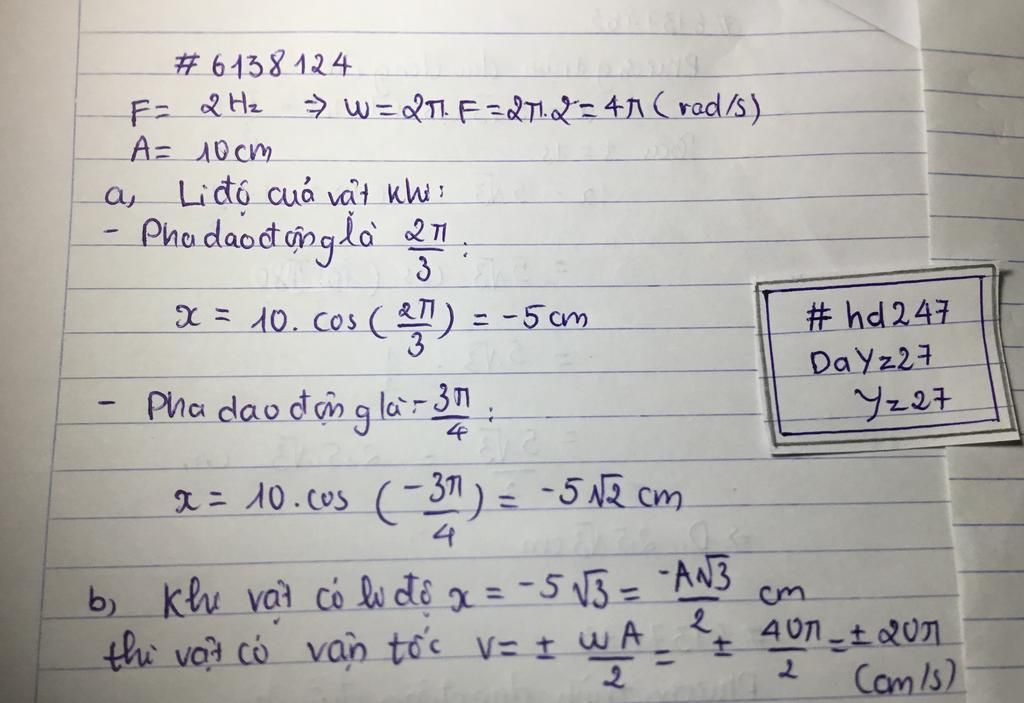 # 6138124
F = 2 Hz ⇒ W = 2π. F = 2π.2 = 4π ( rad/s)
A = 10 cm
a, Li độ cuả vật khi:
- Pha dao động là 2π/3 :
x = 10. cos ( 2π/3 ) = -5 cm
- Pha dao động là - 3π/4 :
x = 10. cos ( -3π/4 ) = -5√2 cm
b, Khi vật có li độ x = -5√3 = -A√3/2 cm
thì vật có vận tốc v = ± WA/2 = ± 40π/2 = ± 20π
(cm/s)
# hd247
DaYz27
Yz27